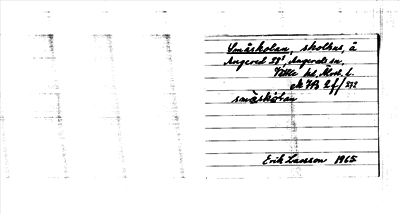 Småskolan, skolhus, å
Angered 38¹, Angereds sn,
Vättle hd, Älvsb. l.
ek 7B 2f/
småskolan
Erik Larsson 1965